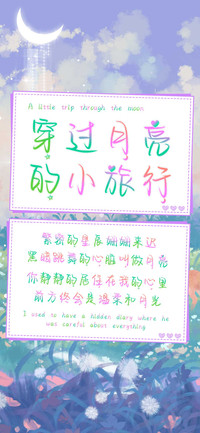 A little trip through the moon
穿过月亮
的小旅行
繁密的星辰姗姗来迟
黑暗跳舞的心脏叫做月亮
你静静的居住在我的心里
前方终会是温柔和月光
I used to have a hidden diary where he
was careful about everything